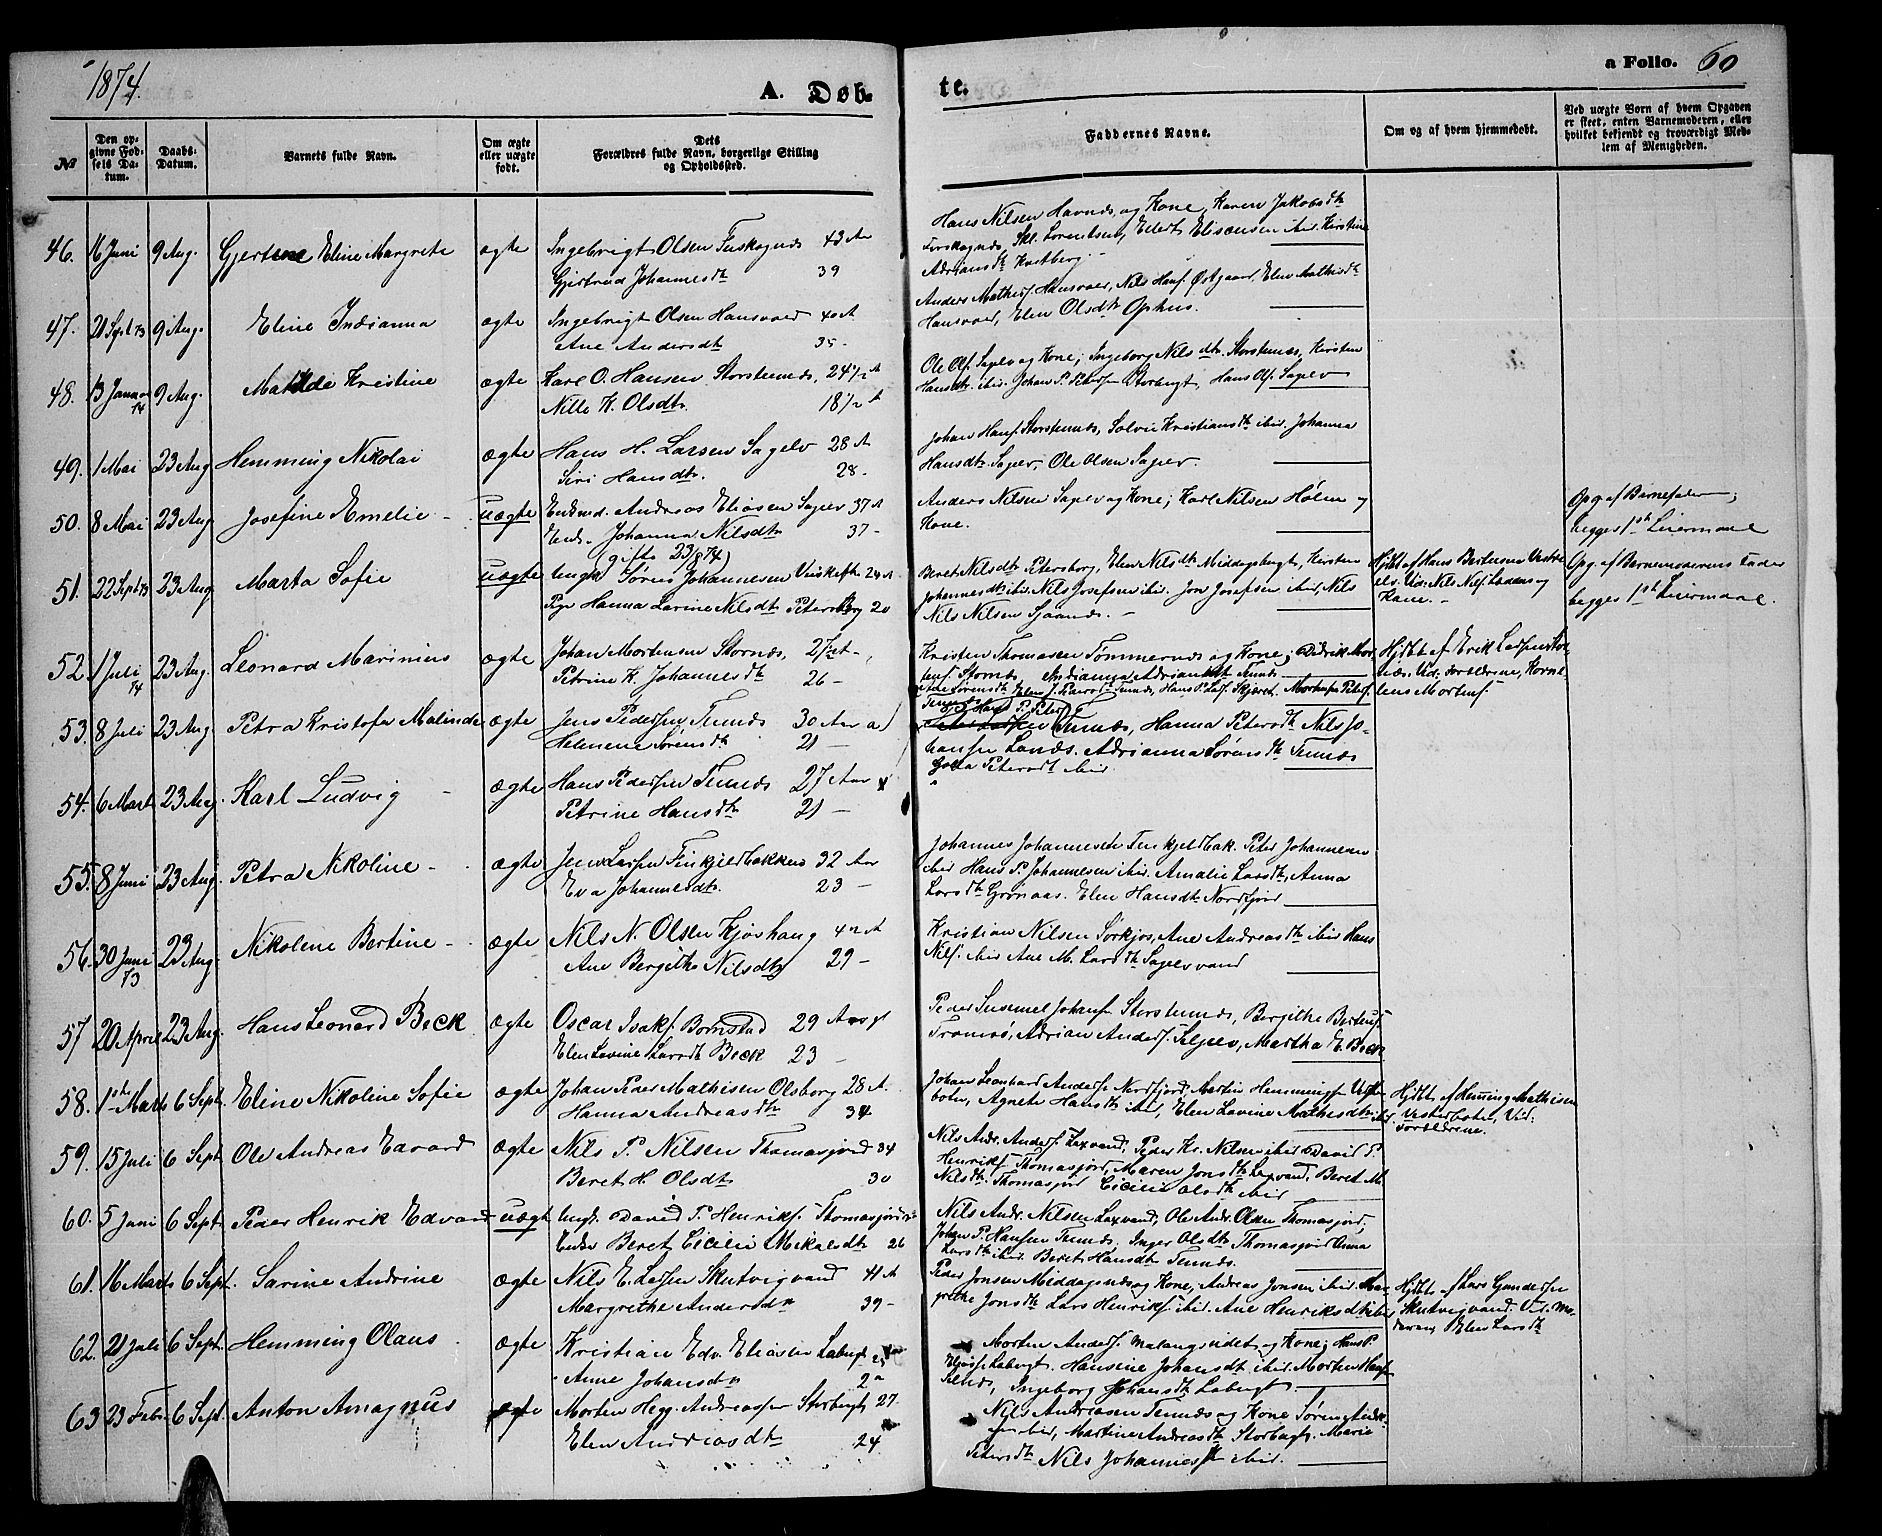 1874.
A. Døb-
te.
a Folio. 60
No
Den op-
givne Fød-
sels Da-
tum.
Daabs-
Datum.
Barnets fulde Navn.
Om ægte
eller uægte
født.
Dets
Forældres fulde Navn, borgerlige Stilling
og Opholdssted.
Faddernes Navne.
Om og af hvem hjemmedøbt.
Ved uægte Børn af hvem Opgaven
er skeet, enten Barnemoderen, eller
hvilket bekjendt og troværdigt Med-
lem af Menigheden.
46. 16 Juni 9 Aug. Gjertine Eline Margrete ægte Ingebrigt Olsen 43 Aar
Gjertrud Johannesdtr 39
Hans Nilsen Havnæs og Kone, Karen Jakobsdtr
Lorentsen, Ellert Eliseussen ibid. Kirstine
Adriansdtr
47. 21 Sept 73 9 Aug. Eline Indianna ægte Ingebrigt Olsen Hansvoer 40 A
Ane Andersdtr 35 -
Anders Mathisf. Hansvoer, Nils Hansf. Østgaard, Elen Mathisdtr
Hansvoer, Elen Olsdtr Ophus.
48. 13 Januar 74 9 Aug. Matilde Kristine ægte Karl O. Hansen Storstennæs, 24½ A
Nille K. Olsdtr. 18½ A
Ole Olf. Sagelv og Kone, Ingeborg Nilsdtr. Storstennæs, Kirsten
Hansdtr. ibid. Johan P. Petersen Storbugt, Hans Olf. Sagelv
49. 1 Mai 23 Aug Hemming Nikolai ægte Hans H. Larsen Sagelv 28 A
Siri Hansdtr. 28 -
Johan Hansf. Storstennæs, Solvei Kristiansdtr ibid. Johanna
Hansdtr. Sagelv, Ole Olsen Sagelv.
50. 8 Mai 23 Aug Josefine Emelie - uægte Enkemd. Andreas Eliasen Sagelv 37 A
Enke. Johanna Nilsdtr 37 -
(gifte 23/8 74)
Anders Nilsen Sagelv og Kone; Karl Nilsen Holm og
Kone.
Opg. af Barnefader;
begges 1ste Leiermaal
51. 22 Sept 73 23 Aug Marta Sofie uægte Ungk. Søren Johannesen 24 A
Pige Hanna Lavine Nilsdtr Petersborg 20
Beret Nilsdtr Petersborg, Elen Nilsdtr Middagsbugt, Kirsten
Johannesdtr ibid. Nils Josefsen ibid. Jon Josefsen ibid, Nils
Nils Nilsen
Hjdbt af Hans Bertensen
elv. Vid: Nils Nilsf. og
Kone. -
Opg. af Barnemoderens Fader
begges 1ste Leiermaal.
52. 1 Juli 74 23 Aug. Leonard Marinius ægte Johan Mortensen Stornæs, 27 A
Petrine K. Johannesdtr 26 -
Kristen Thomasen Tømmernæs og Kone; Didrik Mor-
tensf. Stornæs, Indianna Adriansdtr Tennæs
Hjdbt af Erik
Vid: Forældrene,
Mortensf.
53. 8 Juli 23 Aug. Petra Kristofa Malinde ægte Jens Pedersen Tennæs 30 Aar a)
Helenene Sørensdtr 21 -
Tennæs, Hanna Petersdtr Nils Jo-
hansen Adrianna Sørensdtr Tennæs
Petersdtr ibid.
54. 6 Mart 23 Aug. Karl Ludvig - ægte Hans Pedersen Tennæs 27 Aar
Petrine Hansdtr 21 -
55. 8 Juni 23 Aug. Petra Nikoline - ægte Jens Larsen 32 Aar
Eva Johannesdtr. 23 -
Johannes Johannesen Peter Johannesen
ibid Hans P. Johannesen ibid. Amalie Larsdtr, Anna
Larsdtr Grønaas. Elen Hansdtr Nordfjord
56. 30 Juni 73 23 Aug. Nikolene Bertine - ægte Nils N. Olsen Kjøshaug 42 A
Ane Bergithe Nilsdtr 29 -
Kristian Nilsen Sørkjos, Ane Andreasdtr ibid Hans
Nilsf. ibid Ane M. Larsdtr Sagelvvand
57 20 April 23 Aug. Hans Leonard Beck ægte Oscar Isaksf. Bomstad 29 Aar
Elen Lavine Larsdtr Beck 23 -
Peder Johansf. Storstennæs, Bergithe
Tromsø, Adrian Andersf. Martha E. Beck
58. 1ste Marts 6 Sept. Eline Nikoline Sofie ægte Johan Peder Mathisen Olsborg 28 A.
Hanna Andreasdtr 34
Johan Leonhard Andersf Nordfjord, Martin Hemmingsen Vester-
botn, Agnete Hansdtr ibid, Elen Lavine Mathisdtr ibid.
Hjdbt af Hemming Mathisen
Vesterbotn, Vid:
Forældrene.
59. 15 Juli 6 Sept Ole Andreas Edvard ægte Nils P. Nilsen Thomasjord 34
Beret H Olsdtr 30
Nils Andr. Andersf. Laxvand, Peder Kr. Nilsen ibid David P.
Henriksf. Thomasjord, Maren Jonsdtr Laxvand, Beret M.
Nilsdtr. Thomasjord Cicilie Olsdtr ibid
60. 5 Juni 6 Sept Peder Henrik Edvard uægte Ungk. David P. Henriksf. Thomasjord
Enke Beret Cicilie Mikalsdtr 26
Nils Andr. Nilsen Laxvand, Ole Andr. Olsen Thomasjord,
Johan P. Hansen Tennæs. Inger Olsdtr Thomasjord Anna
Larsdtr ibid. Beret Hansdtr Tennæs
61. 16 Marts 6 Sept. Sarine Andrine ægte Nils E. Larsen Skutvigvand 41 A
Margrethe Andersdtr 39 -
Peder Jonsen Middagsnæs og Kone, Andreas Jonsen ibid. Mar-
grethe Jonsdtr Lars Henriksf. ibid. Ane Henriksdtr ibid
Hjdbt af Lars Gundersen
Skutvigvand. Vid. Mo-
deren, Elen Larsdtr
62. 21 Juli 6 Sept. Hemming Olaus ægte Kristian Edv. Eliasen Labugt
Anne Johansdtr
Morten Andersf. Malangseidet og Kone; Hans P.
Eliasf. Labugt. Hansine Johansdtr ibid. Morten Hansf.
Ingeborg Johansdtr Labugt
63 23 Febr 6 Sept. Anton Amagnus ægte Morten Hegg Andreassen Storbugt 27.
Elen Andreasdtr 24
Nils Andreasen Tennæs og Kone Søren
ibid, Martine Andreasdtr Storbugt. Marie
Petersdtr Nils Johannesen ibid.